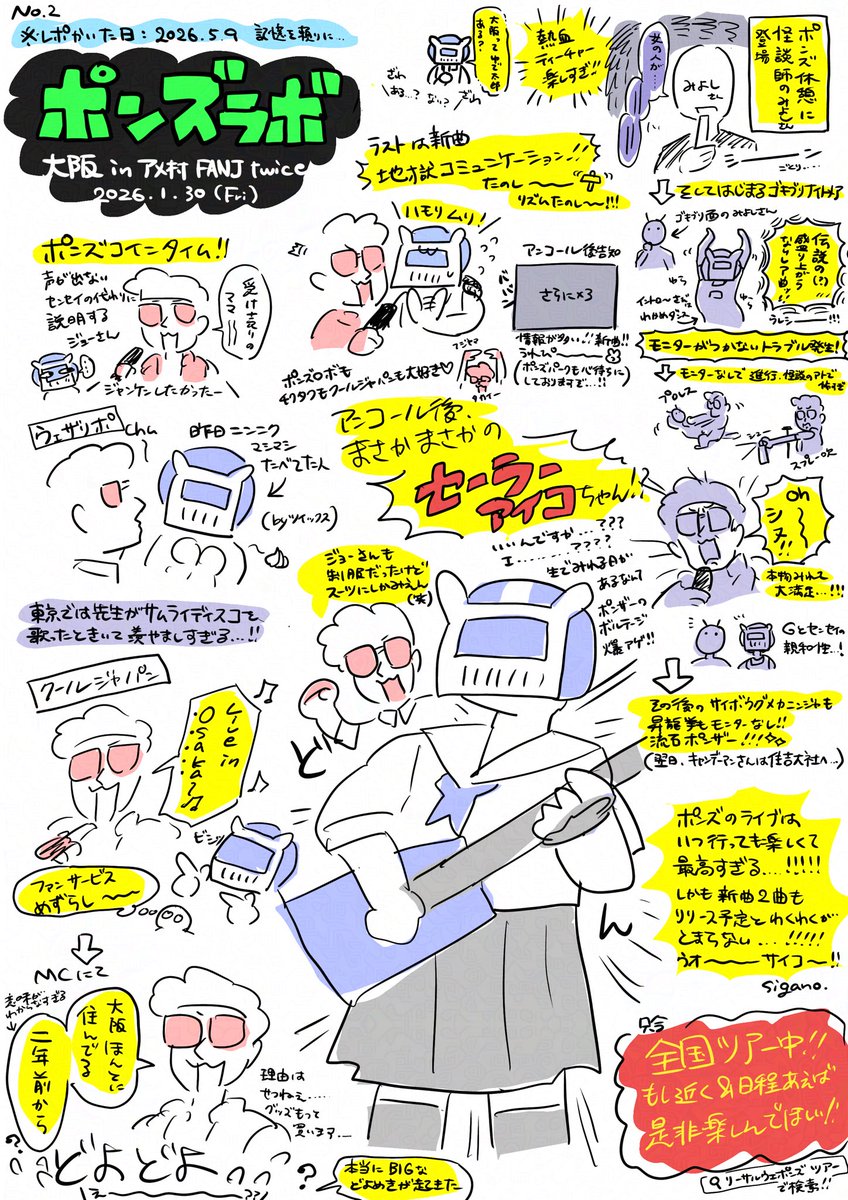 No.2
※レポかいた日：2026.5.9 記憶を頼りに…
ポンズラボ
大阪 in アメ村 FANJ twice
2026.1.30（Fri）
ポンズコインタイム!!
声が出ない
センセイの代わりに
説明する
ジョーさん
受け売りの
ママ
ジャンケンしたかったー
ウェザリポ
chu
昨日ニンニク
マシマシ
たべてた人
(byツイックス)
東京では先生がサムライディスコを
歌ったときいて羨やましすぎる…!!
クールジャパン
Live in
Osaka?♪
ファンサービス
めずらし〜〜
ビシッ
MCにて
大阪ほんとに
住んでる
二年前から
どよどよ
?
理由は
せつねぇ…
グッズもって
買います…
本当にBIGな
どよめきが起きたw
大阪って出て来郎
ある？
ざわ
ある…？ない？
ざわ
熱血
ティーチャー
楽しすぎ!!
ラストは新曲
地獄コミュニケーション!!
たのし〜〜
リズムたのし〜!!!
ハモリムリ！
アンコール後告知
さらに×3
情報が多い!!新曲!!
うれぴ〜
(ポンズパークも心待ちに
しておりますで…!!)
ポンズロボも
チクタクもクールジャパンも大好き♡
アンコール後、
まさかまさかの
セーラー
アイコちゃん!?
いいんですか…???
エ………????
生でみれる日が
あるなんて
ポンザーの
ボルテージ
爆アゲ!!
ジョーさんも
制服だったけど
スーツにしかみえん
(笑)
どん
ポンズ休憩に
怪談師のみよしさん
登場
みよしさん
女の人が…
ごとり…
そしてはじまるゴキブリナイトメア
ゴキブリ面のみよしさん
伝説の(?)
盛り上がら
ならレア曲ッ!!
ゆら
ゆら
イントロ〜さいご
わかめダンス
ウレシー!!!
モニターがつかないトラブル発生！
モニターなしで進行、怪談のアトで
怖すぎ
プロレス
シュー
スプレー吹
oh〜
シヌッ!!
本物みれて
大満足…!!!
Gとセンセイの
親和性…！
その後のサイボーグメカニンジャも
昇龍拳もモニターなし!!
流石ポンザー!!!
(翌日、キャンデーマンさんは住吉大社へ…)
ポンズのライブは
いつ行っても楽しくて
最高すぎる…!!!!!
しかも新曲2曲も
リリース予定とわくわくが
とまらない…!!!!!
ウオ〜〜サイコ〜!!
sigano.
只今
全国ツアー中!!
もし近く&日程あえば
是非楽しんでほしい!!
リーサルウェポンズ ツアー
で検索!!